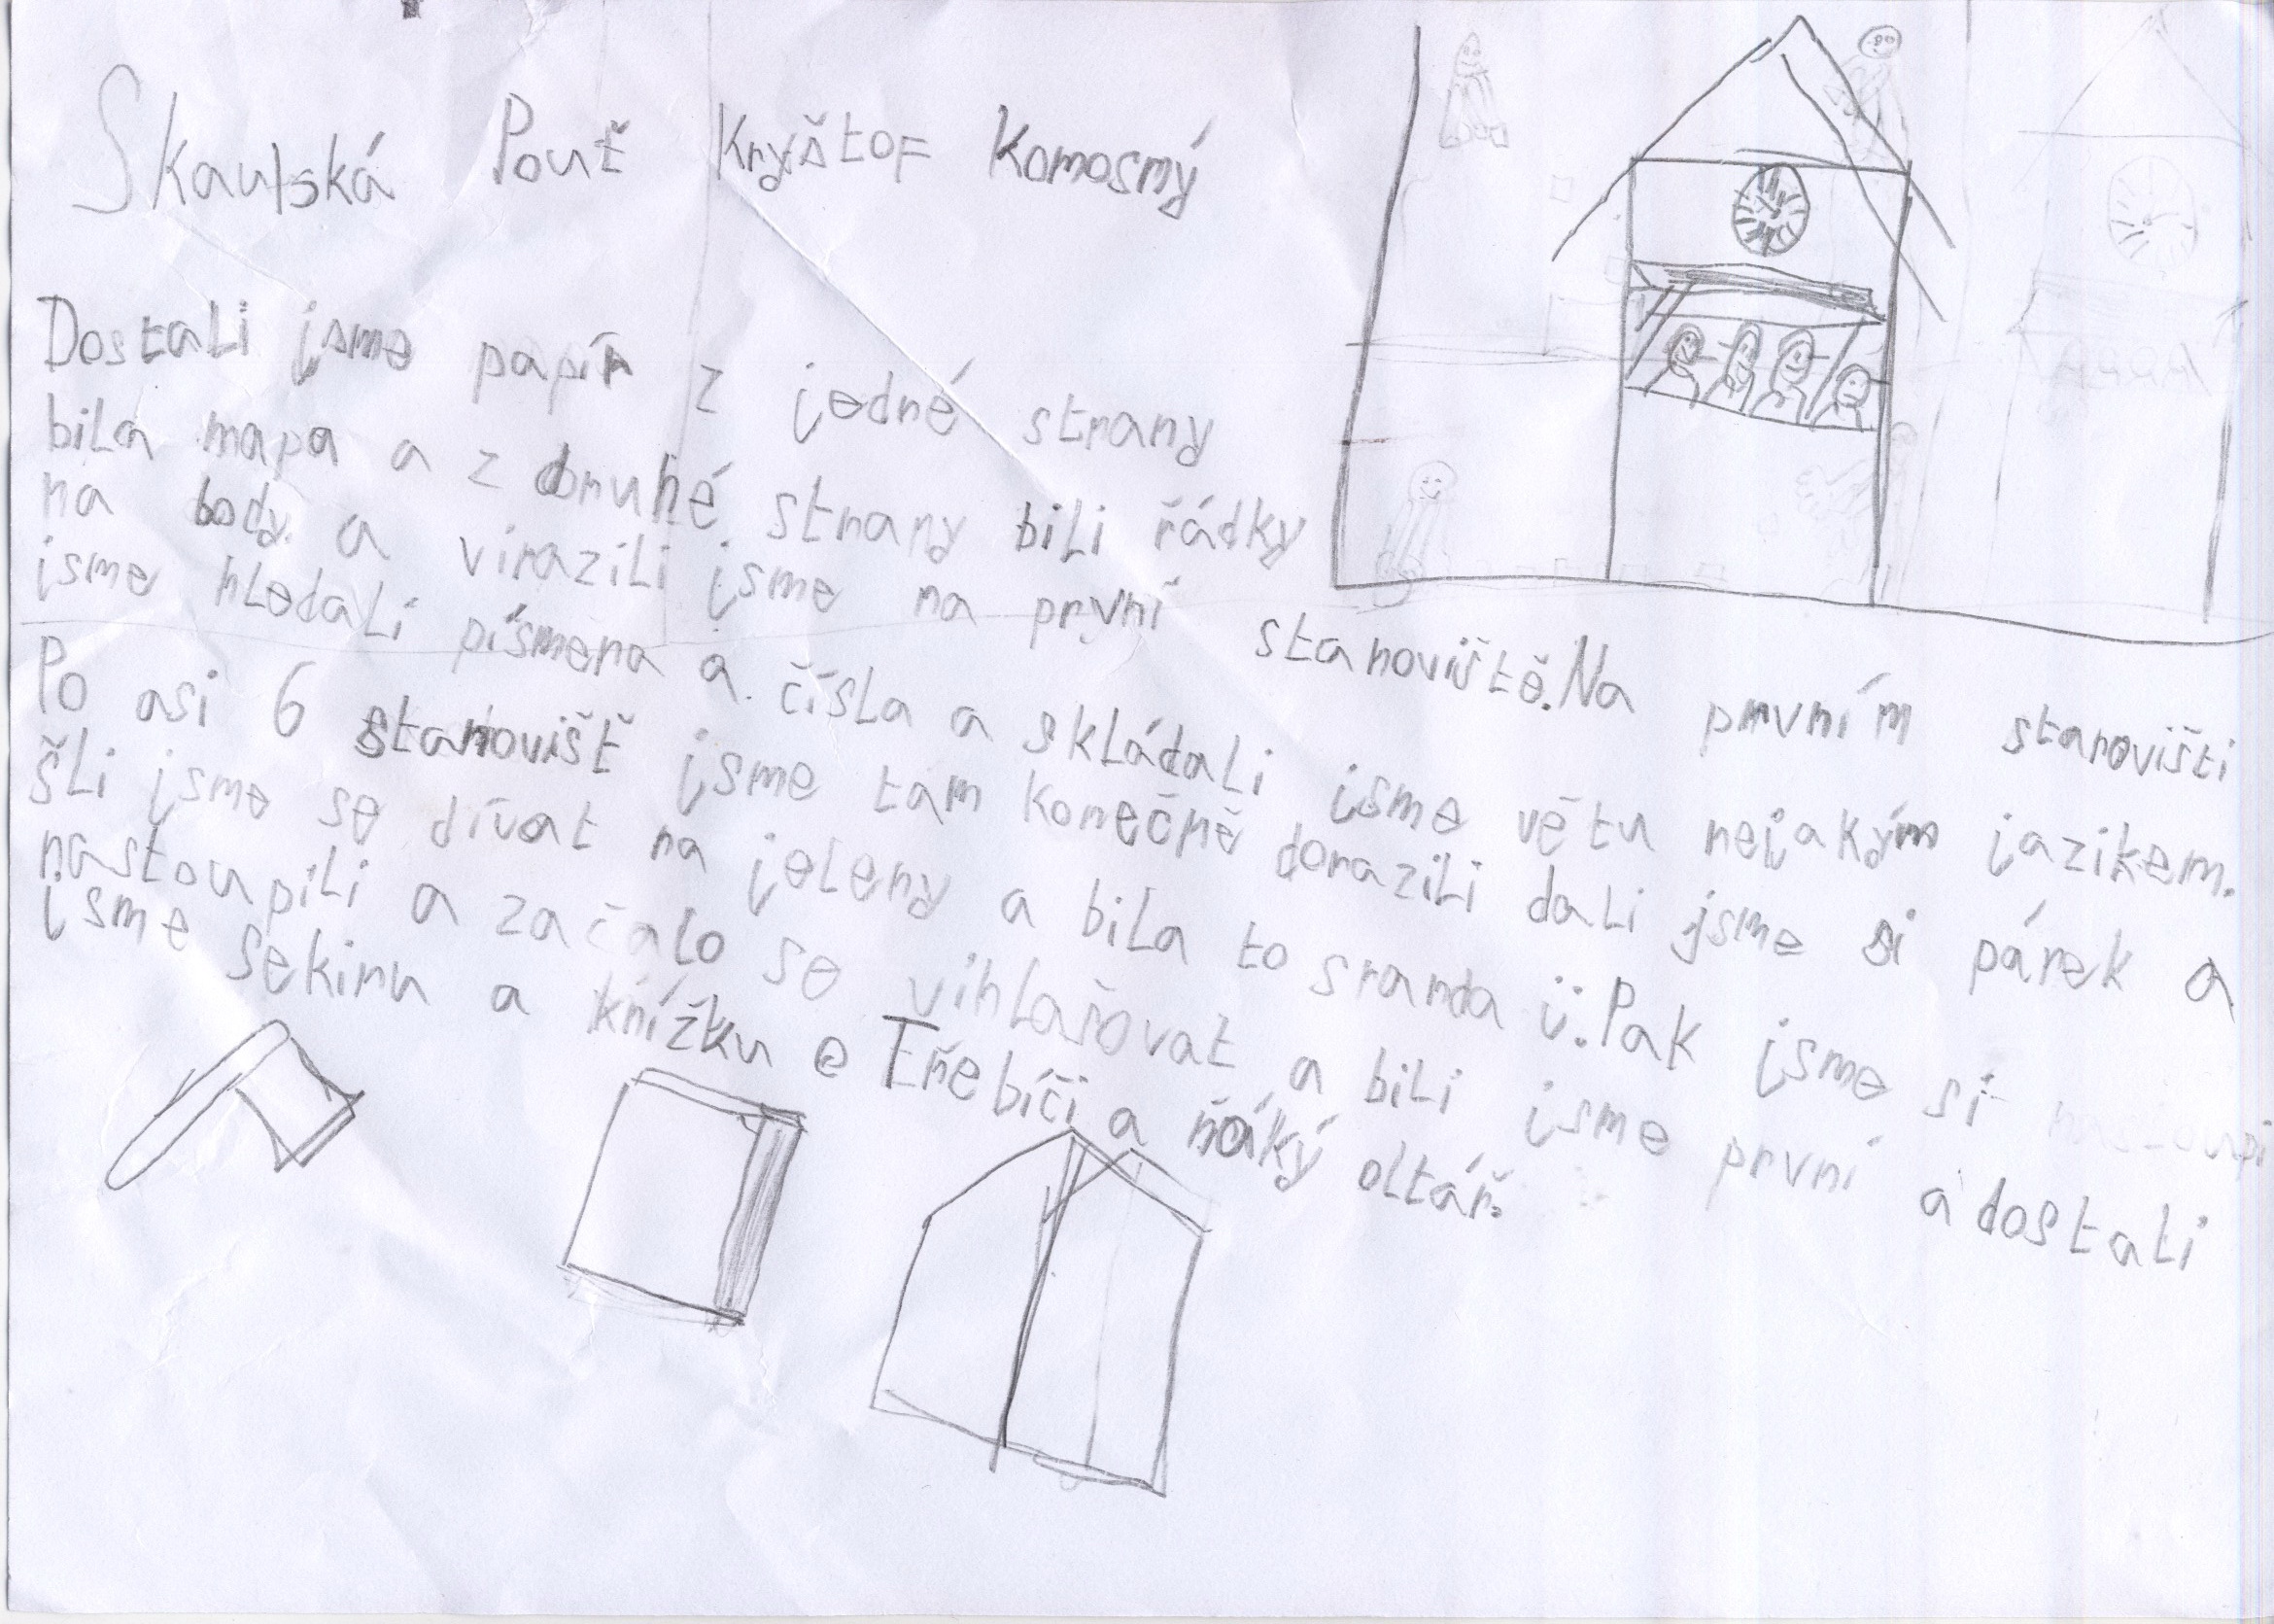 Skautská Pouť Kryštof Komosmý
Dostali jsme papír z jedné strany
bila mapa a z druhé strany bili řádky
na body a virazili jsme na první stanoviště.Na prvním stanovišti
jsme hledali písmena a čísla a skládali jsme větu nejakým jazikem.
Po asi 6 stanovišť jsme tam konečně dorazili dali jsme si párek a
šli jsme se dívat na jeleny a bila to sranda ü.Pak jsme si
nastoupili a začalo se vihlašovat a bili jsme první a dostali
jsme sekiru a knížku o Třebíči a ňáký oltář.